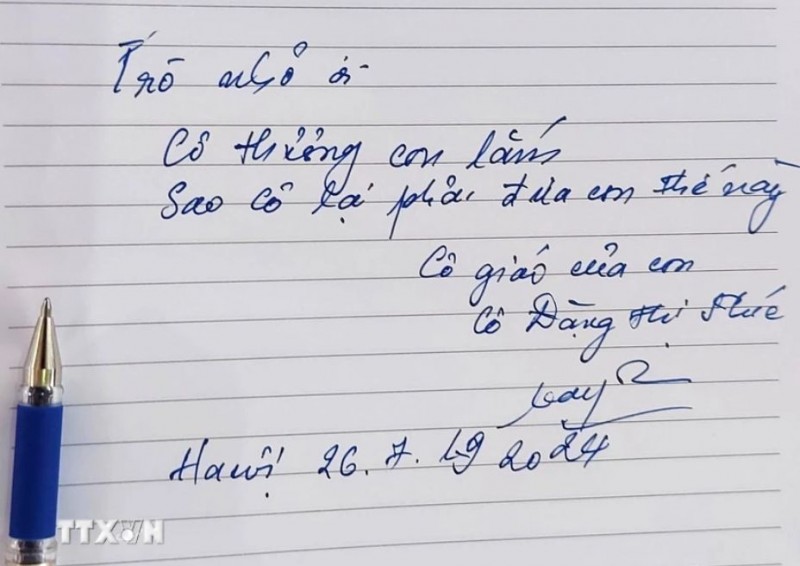 Trò nhỏ ơi
Cô thương con lắm
Sao cô lại phải đưa con thế này
Cô giáo của con
Cô Đặng Thị Phúc
Hanội 26.7.19 2024
TTXVN